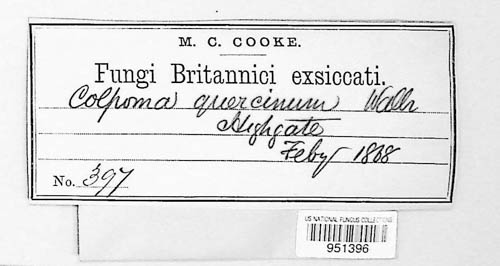 M. C. COOKE.
Fungi Britannici exsiccati.
Colpoma quercinum Wallr
Highgate
Feby 1868
No. 397
US NATIONAL FUNGUS COLLECTIONS
951396